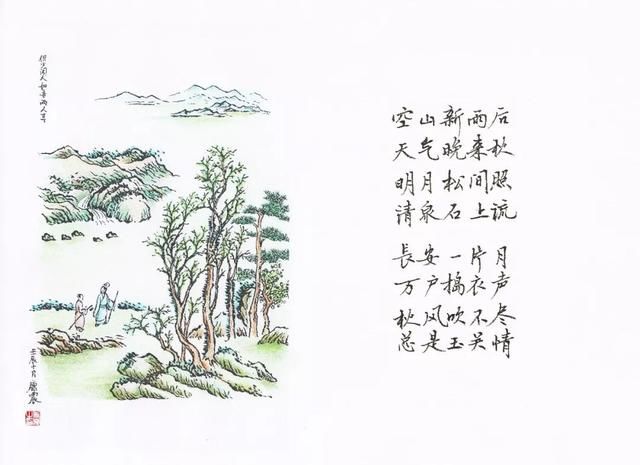 但少闲人如吾两人者
空山新雨后
天气晚来秋
明月松间照
清泉石上流
長安一片月
万户捣衣声
秋风吹不尽
总是玉关情
壬辰十月